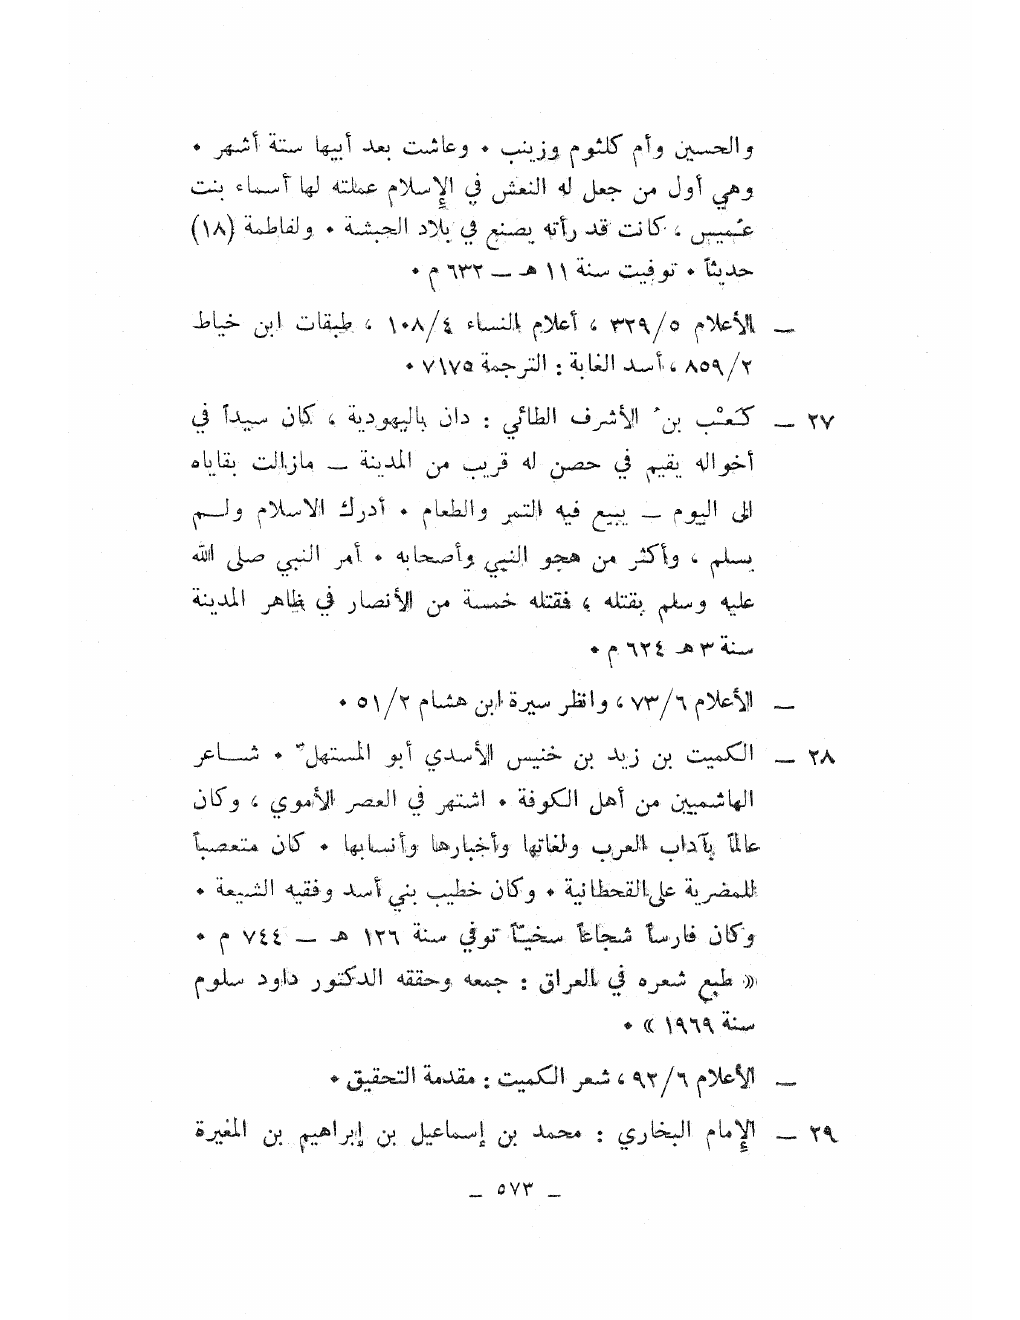 والحسين وأم كلثوم وزينب . وعاشت بعد أبيها ستة أشهر .
وهي أول من جعل له النعش في الإسلام عملته لها أسماء بنت
عميس ، كانت قد رأته يصنع في بلاد الحبشة . ولفاطمة (١٨)
حديثاً . توفيت سنة ١١ هـ ــ ٦٣٢ م .
ــ الأعلام ٣٢٩/٥ ، أعلام النساء ١٠٨/٤ ، طبقات ابن خياط
٨٥٩/٢ ، أسد الغابة : الترجمة ٧١٧٥ .
٢٧ ــ كَعْب بن ُ الأشرف الطائي : دان باليهودية ، كان سيداً في
أخواله يقيم في حصن له قريب من المدينة ــ مازالت بقاياه
الى اليوم ــ يبيع فيه التمر والطعام . أدرك الاسلام ولم
يسلم ، وأكثر من هجو النبي وأصحابه . أمر النبي صلى الله
عليه وسلم بقتله ، فقتله خمسة من الأنصار في ظاهر المدينة
سنة ٣ هـ ٦٢٤ م .
ــ الأعلام ٧٣/٦ ، وانظر سيرة ابن هشام ٥١/٢ .
٢٨ ــ الكميت بن زيد بن خنيس الأسدي أبو المستهلّ . شاعر
الهاشميين من أهل الكوفة . اشتهر في العصر الأموي ، وكان
عالماً بآداب العرب ولغاتها وأخبارها وأنسابها . كان متعصباً
للمضرية على القحطانية . وكان خطيب بني أسد وفقيه الشيعة .
وكان فارساً شجاعاً سخيّاً توفي سنة ١٢٦ هـ ــ ٧٤٤ م .
« طبع شعره في العراق : جمعه وحققه الدكتور داود سلوم
سنة ١٩٦٩ » .
ــ الأعلام ٩٢/٦ ، شعر الكميت : مقدمة التحقيق .
٢٩ ــ الإمام البخاري : محمد بن إسماعيل بن إبراهيم بن المغيرة
ــ ٥٧٣ ــ